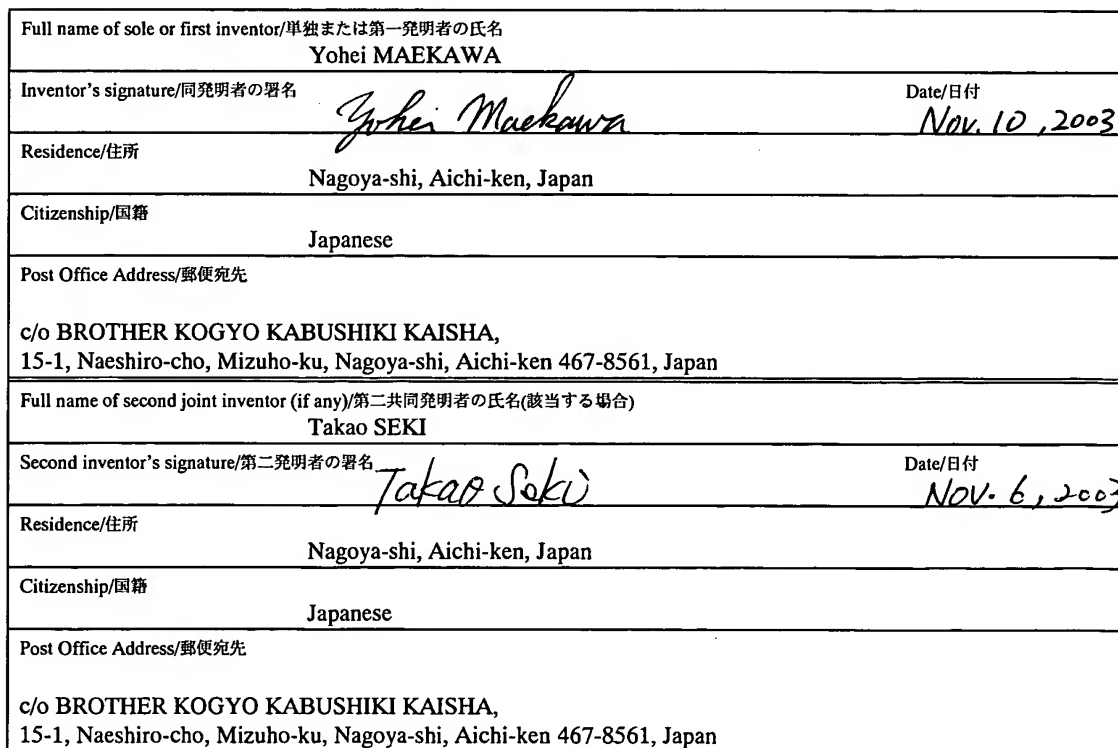 Full name of sole or first inventor/単独または第一発明者の氏名
Yohei MAEKAWA
Inventor's signature/同発明者の署名 Yohei Maekawa Date/日付 Nov. 10, 2003
Residence/住所
Nagoya-shi, Aichi-ken, Japan
Citizenship/国籍
Japanese
Post Office Address/郵便宛先
c/o BROTHER KOGYO KABUSHIKI KAISHA,
15-1, Naeshiro-cho, Mizuho-ku, Nagoya-shi, Aichi-ken 467-8561, Japan
Full name of second joint inventor (if any)/第二共同発明者の氏名(該当する場合)
Takao SEKI
Second inventor's signature/第二発明者の署名 Takao Seki Date/日付 Nov. 6, 2003
Residence/住所
Nagoya-shi, Aichi-ken, Japan
Citizenship/国籍
Japanese
Post Office Address/郵便宛先
c/o BROTHER KOGYO KABUSHIKI KAISHA,
15-1, Naeshiro-cho, Mizuho-ku, Nagoya-shi, Aichi-ken 467-8561, Japan